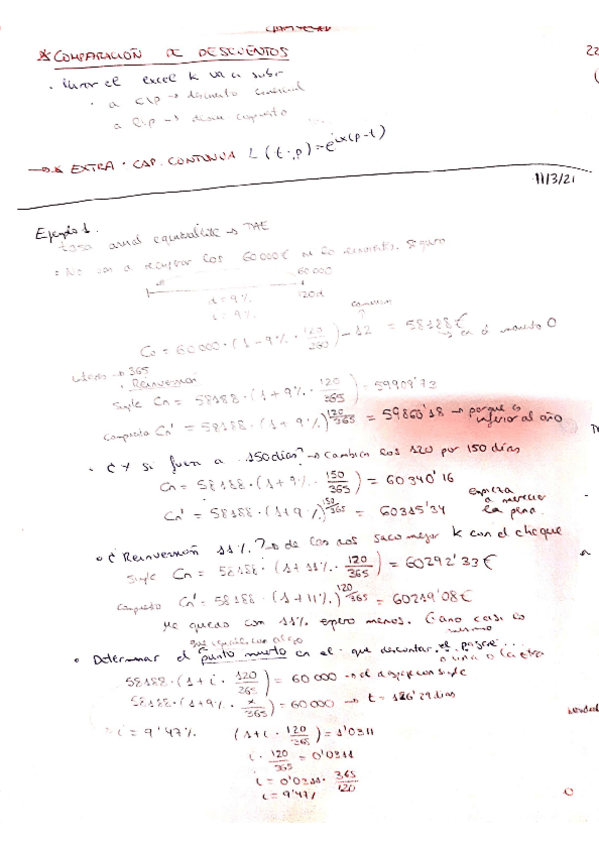 * COMPARACIÓN DE DESCUENTOS
22
· mirar el excel k va a subir
· a C/p → descuento comercial
a C/p → descu compuesto
→ * EXTRA · CAP. CONTINUA L(t,p) = e^ix(p-t)
11/3/21
Ejemplo 1.
tasa anual equivalente → TAE
· No van a recuperar los 60000€ seguro
60 000
120d
i = 9%
C₀ = 60000 · (1 - 9% · 120/360) - 12 = 58188€
→ en el momento 0
→ 365
· Reinversión
Simple Cn = 58188 · (1 + 9% · 120/365) = 59909'73
Compuesto Cn' = 58188 · (1 + 9%)^120/365 = 59860'18 → porque es
inferior al año
· ¿Y si fuera a 150 días? → Cambian los 120 por 150 días
Cn = 58188 · (1 + 9% · 150/365) = 60340'16
Cn' = 58188 · (1 + 9%)^150/365 = 60285'34
empieza
a merecer
la pena.
· ¿Reinversión 11%? → de las dos saco mejor k con el cheque
Simple Cn = 58188 · (1 + 11% · 120/365) = 60292'33€
Compuesto Cn' = 58188 · (1 + 11%)^120/365 = 60219'08€
Me quedo con 11% espero menos. Gano casi lo
mismo
· Determinar el punto muerto en el que descontar el pagaré...
58188 · (1 + i · 120/365) = 60 000 → el despeje con simple
58188 · (1 + 9% · x/365) = 60000 → t = 126'29 dias
i = 9'47% (1 + i · 120/365) = 1'0311
i · 120/365 = 0'0311
i = 0'0311 · 365/120
i = 9'47%